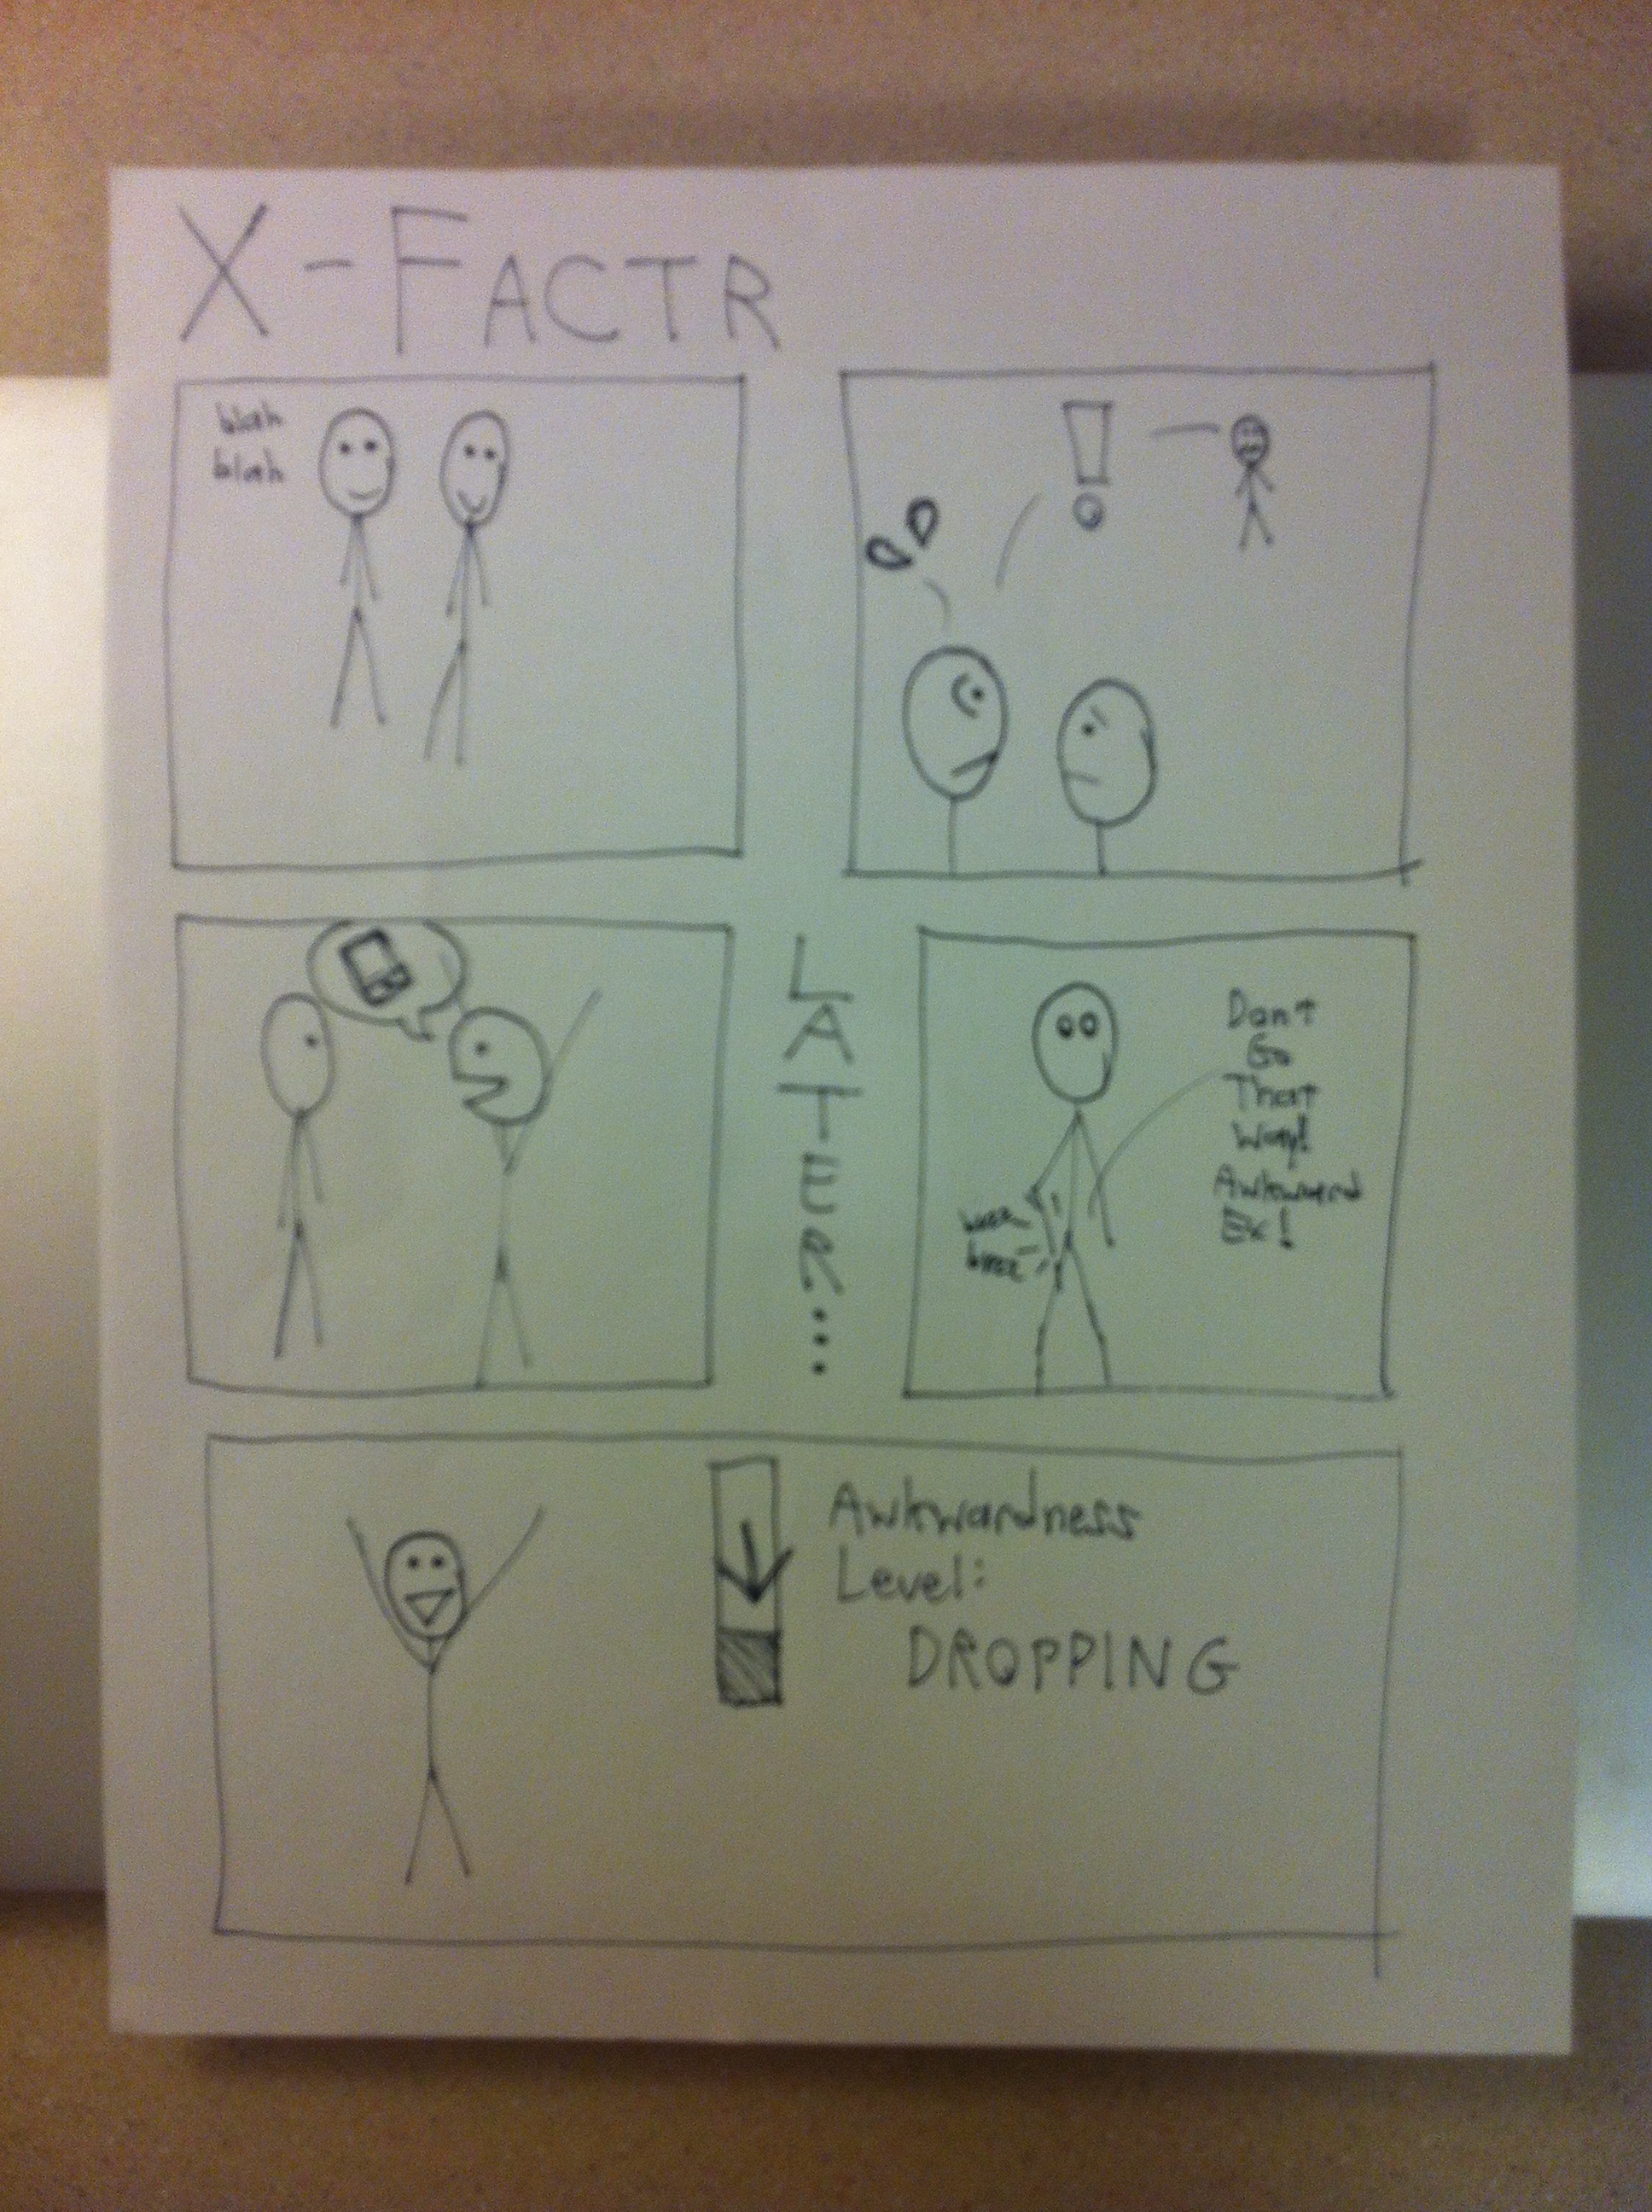 X-FACTR
blah
blah
!
LATER...
Dont
Go
That
Way!
Awkward
Ex!
Awkwardness
Level:
DROPPING